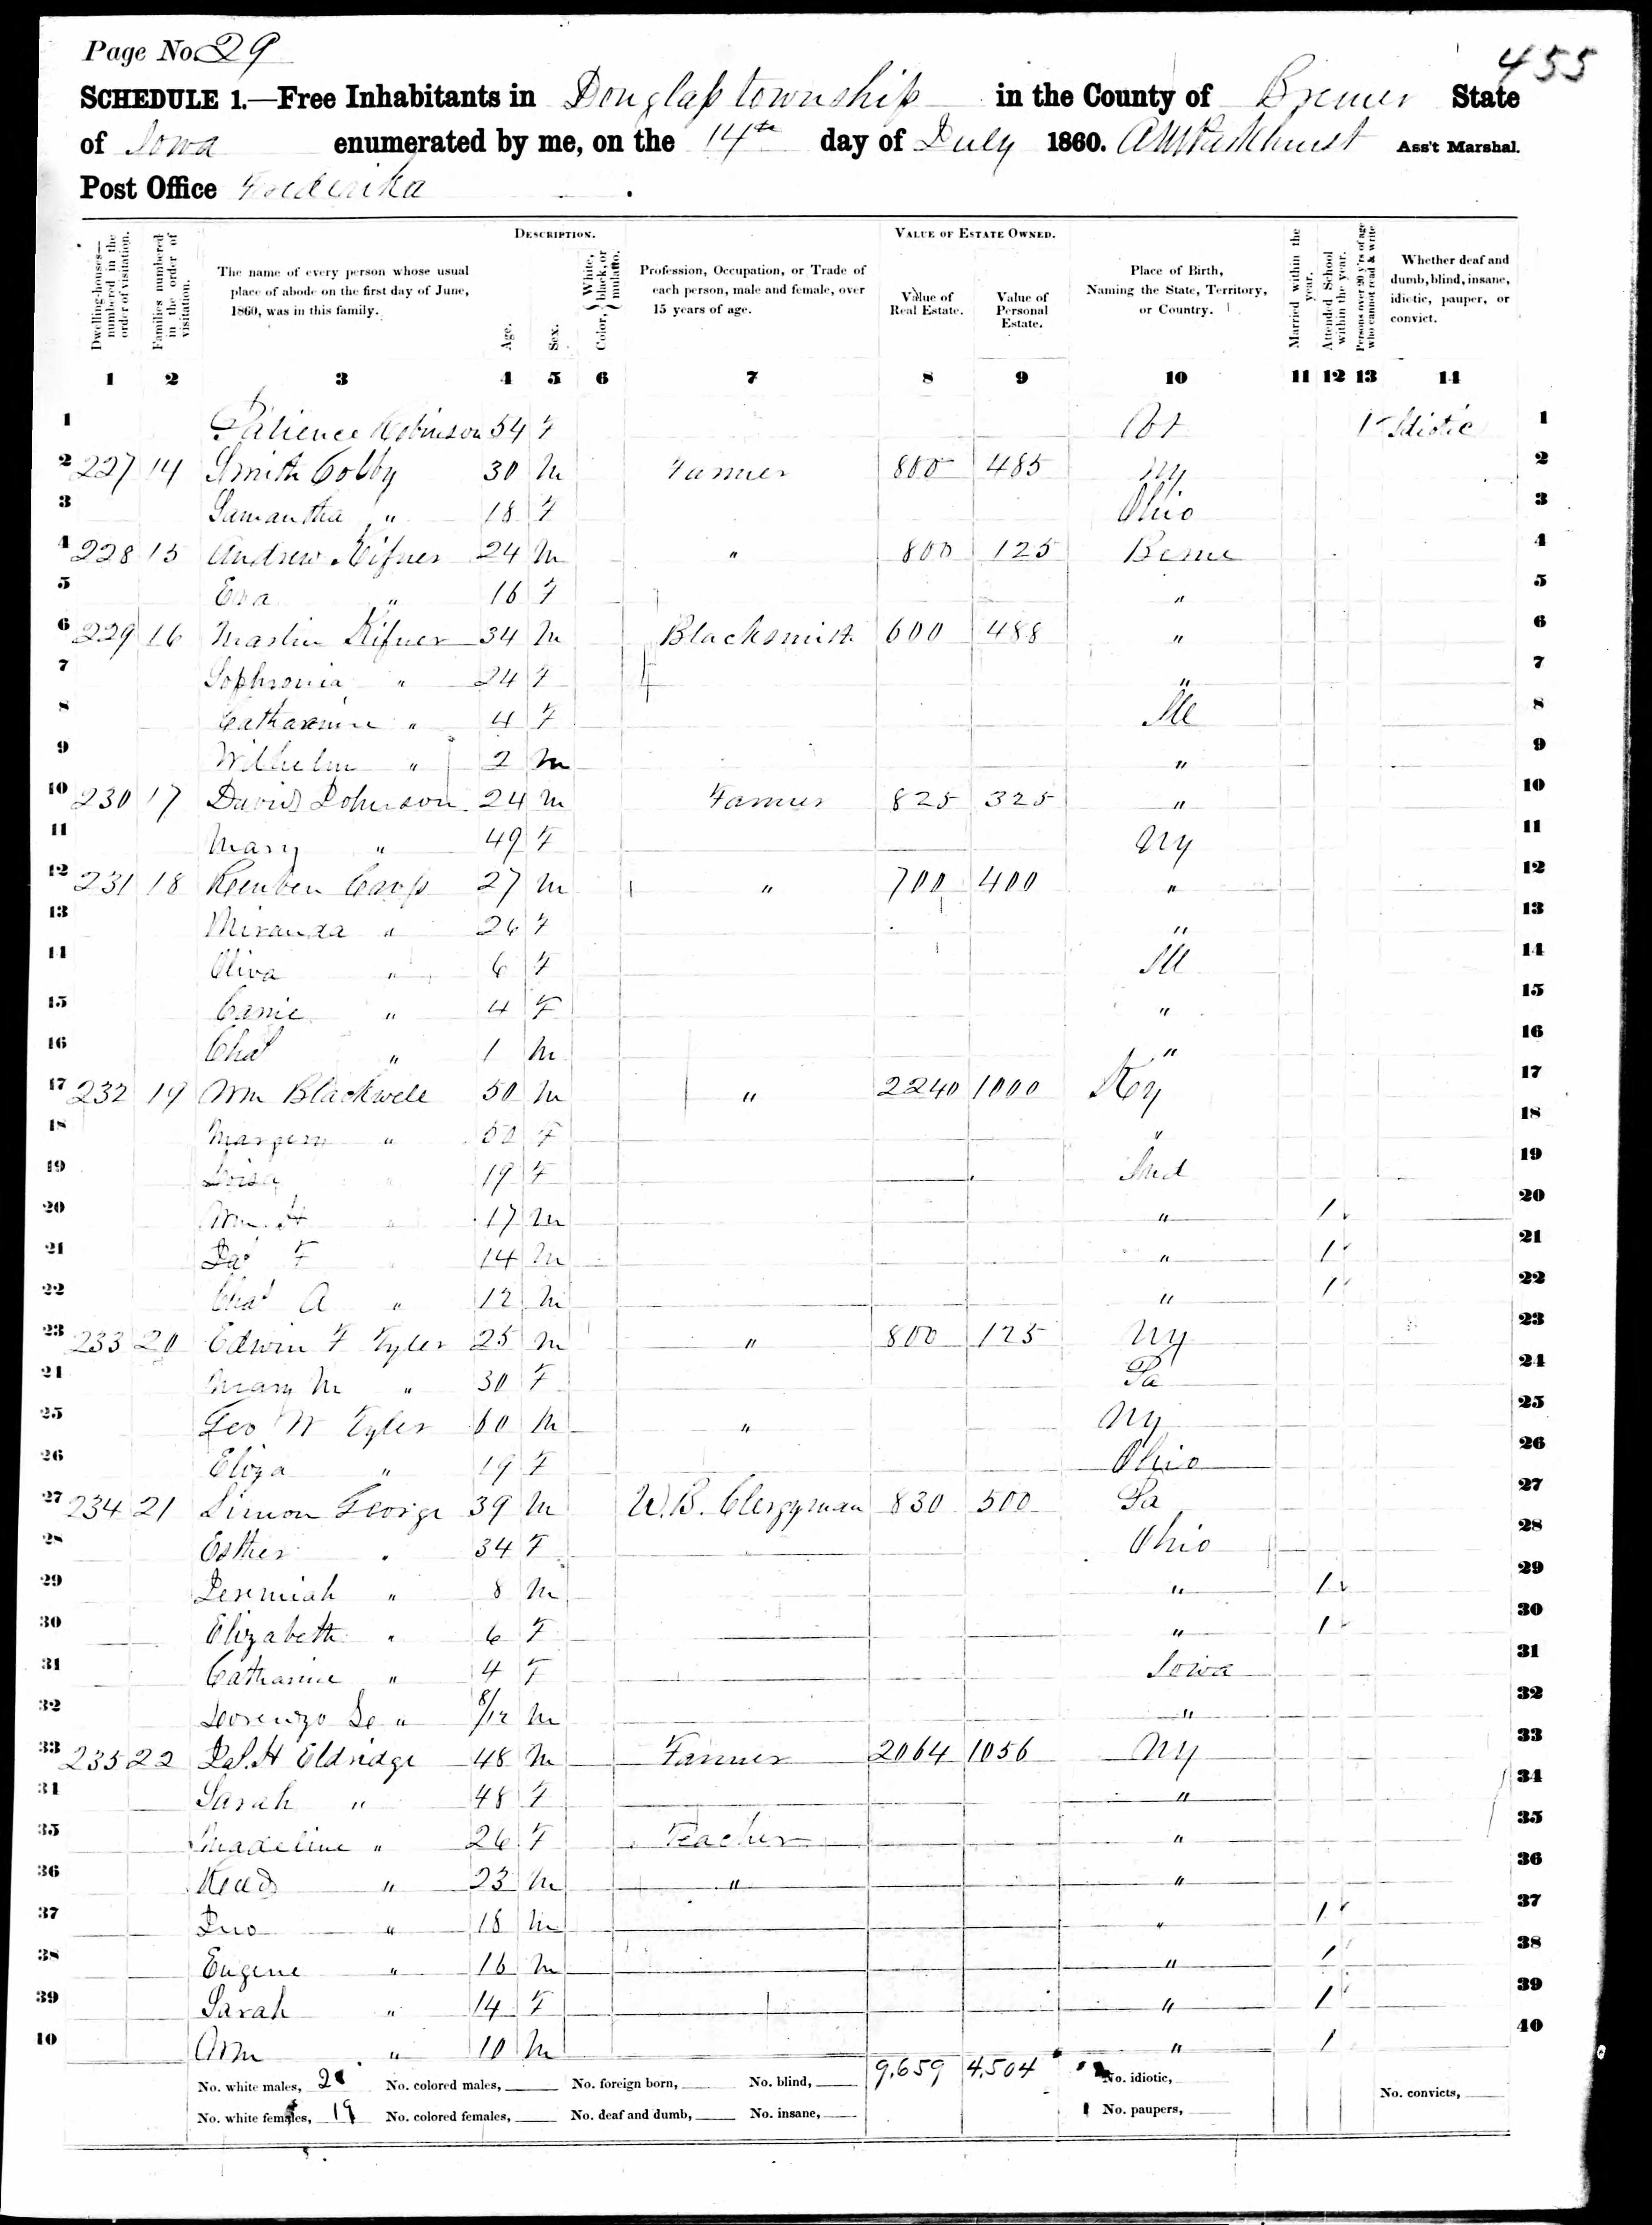 Page No. 29
455
SCHEDULE 1.—Free Inhabitants in Douglass township in the County of Bremer State
of Iowa enumerated by me, on the 14th day of July 1860. Ass't Marshal.
Post Office Frederika
DESCRIPTION.
VALUE OF ESTATE OWNED.
Dwelling-houses—numbered in the order of visitation.
Families numbered in the order of visitation.
The name of every person whose usual place of abode on the first day of June, 1860, was in this family.
Age.
Sex.
Color, { White, black, or mulatto.
Profession, Occupation, or Trade of each person, male and female, over 15 years of age.
Value of Real Estate.
Value of Personal Estate.
Place of Birth, Naming the State, Territory, or Country.
Married within the year.
Attended School within the year.
Persons over 20 y'rs of age who cannot read & write
Whether deaf and dumb, blind, insane, idiotic, pauper, or convict.
1 2 3 4 5 6 7 8 9 10 11 12 13 14
1 Patience Robinson 54 F 1 Idiotic 1
2 227 14 Smith Colby 30 M Farmer 800 485 NY 2
3 Samantha " 18 F Ohio 3
4 228 15 Andrew Kifner 24 M " 800 125 4
5 Eva " 16 F " 5
6 229 16 Martin Kifner 34 M Blacksmith 600 488 " 6
7 Sophronia " 24 F " 7
8 Catharine " 4 F Ill 8
9 Wilhelm " 2 M " 9
10 230 17 David Johnson 24 M Farmer 825 325 " 10
11 Mary " 49 F NY 11
12 231 18 Reuben 27 M " 700 400 " 12
13 Miranda " 26 F " 13
14 Oliva " 6 F Ill 14
15 Carrie " 4 F " 15
16 Chas " 1 M " 16
17 232 19 Wm Blackwell 50 M " 2240 1000 Ky 17
18 Margery " 50 F " 18
19 Loisa " 19 F Ind 19
20 Wm H " 17 M " 1 20
21 Jas F " 14 M " 1 21
22 Chas A " 12 M " 1 22
23 233 20 Edwin F Tyler 25 M " 800 125 NY 23
24 Mary M " 30 F Pa 24
25 Geo W Tyler 60 M " NY 25
26 Eliza " 19 F Ohio 26
27 234 21 Simon George 39 M U.B. Clergyman 830 500 Pa 27
28 Esther " 34 F Ohio 28
29 Jeremiah " 8 M " 1 29
30 Elizabeth " 6 F " 1 30
31 Catharine " 4 F Iowa 31
32 Lorenzo " 8/12 M " 32
33 235 22 Jas. H Eldridge 48 M Farmer 2064 1056 NY 33
34 Sarah " 48 F " 34
35 Madeline " 26 F Teacher " 35
36 " 23 M " " 36
37 Jno " 18 M " 1 37
38 Eugene " 16 M " 1 38
39 Sarah " 14 F " 1 39
40 Wm " 10 M " 1 40
No. white males, No. colored males, No. foreign born, No. blind, 9,659 4,504 No. idiotic, No. convicts,
No. white females, 19 No. colored females, No. deaf and dumb, No. insane, 1 No. paupers,